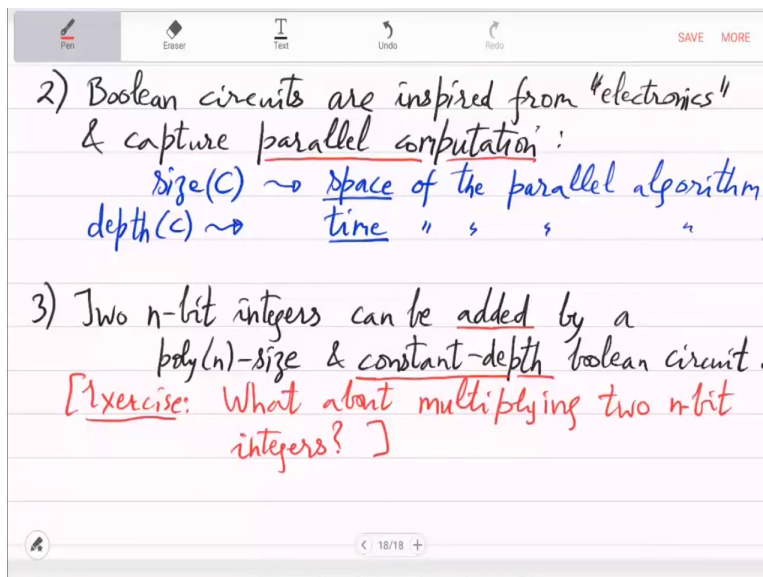 Pen Eraser Text Undo Redo SAVE MORE
2) Boolean circuits are inspired from "electronics"
& capture parallel computation :
size(C) ⇝ space of the parallel algorithm
depth(C) ⇝ time " " " "
3) Two n-bit integers can be added by a
poly(n)-size & constant-depth boolean circuit.
[Exercise: What about multiplying two n-bit
integers? ]
18/18